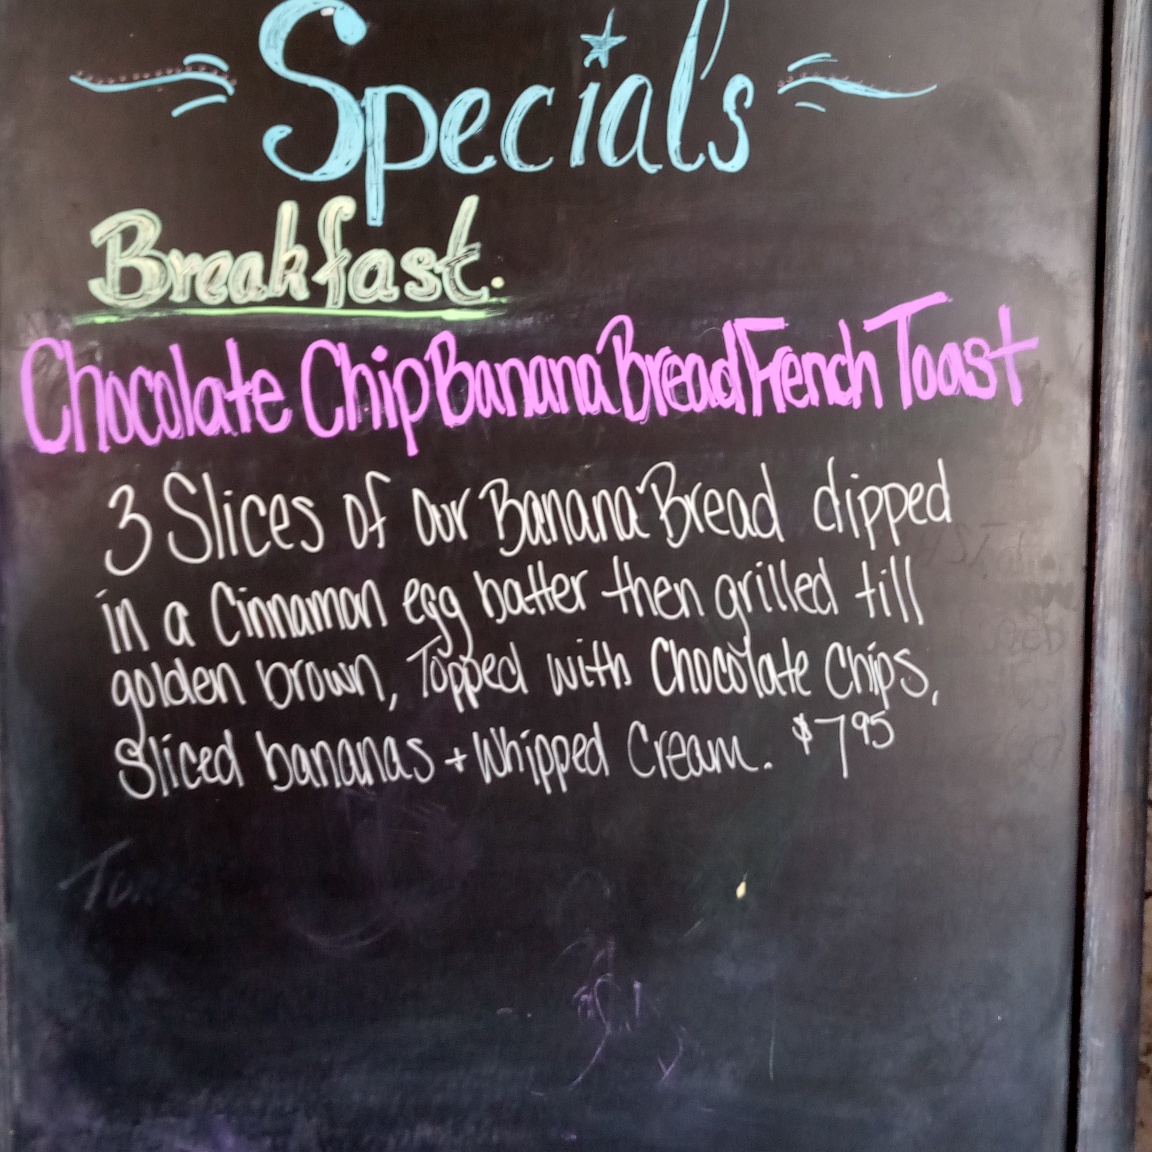 Specials
Breakfast.
Chocolate Chip Banana Bread French Toast
3 Slices of our Banana Bread dipped
in a Cinnamon egg batter then grilled till
golden brown, Topped with Chocolate Chips,
Sliced bananas + Whipped Cream. $7 95